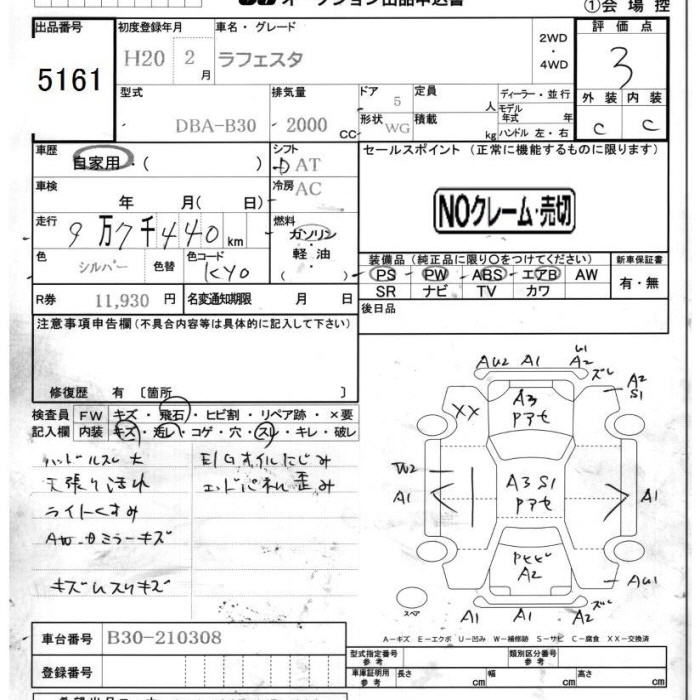 オークション出品申込書
①会場控
出品番号
5161
初度登録年月
H20 2月
車名・グレード
ラフェスタ
2WD
・
4WD
評価点
3
外装 内装
C C
型式
DBA-B30
排気量
2000 CC
ドア 5
形状 WG
定員 人
積載 kg
ディーラー・並行
モデル年式 年
ハンドル 左・右
車歴
自家用・( )
シフト
DAT
セールスポイント (正常に機能するものに限ります)
NOクレーム・売切
車検
年 月( 日)
冷房
AC
走行
9万7千440 km
燃料
ガソリン
・
軽油
( )
色
シルバー
色替
色コード
KY0
装備品(純正品に限り○をつけてください)
PS PW ABS エアB AW
SR ナビ TV カワ
新車保証書
有・無
R券 11,930 円
名変通知期限 月 日
後日品
注意事項申告欄(不具合内容等は具体的に記入して下さい)
修復歴 有 〔箇所 〕
検査員記入欄
FW キズ・飛石・ヒビ割・リペア跡・×要
内装 キズ・汚レ・コゲ・穴・スレ・キレ・破レ
ハンドルスレ大
天張り汚れ
ライトくすみ
AW・カミラーキズ
キズUスリキズ
E/Gオイルにじみ
エンドパネル歪み
AU2 A1 U1 A2
ズレ
A2
S1
XX
A3
Pアセ
W2
A1
A3 S1
Pアセ
A1
Pトビ
A2
AU1
スペア
A1 A1 A2 ズレ
A-キズ E-エクボ U-凹み W-補修跡 S-サビ C-腐食 XX-交換済
車台番号 B30-210308
登録番号
型式指定番号
参考
類別区分番号
参考
車庫証明用
参考
長さ cm 幅 cm 高さ cm